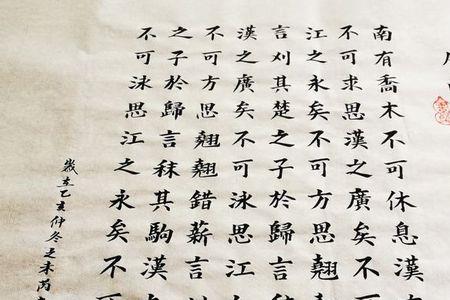 南有喬木不可休息漢
不可求思漢之廣矣不
江之永矣不可方思翹
言刈其楚之子於歸言
漢之廣矣不可泳思江
不可方思翹翹錯薪言
之子於歸言秣其駒漢
不可泳思江之永矣不
歲在乙亥仲冬